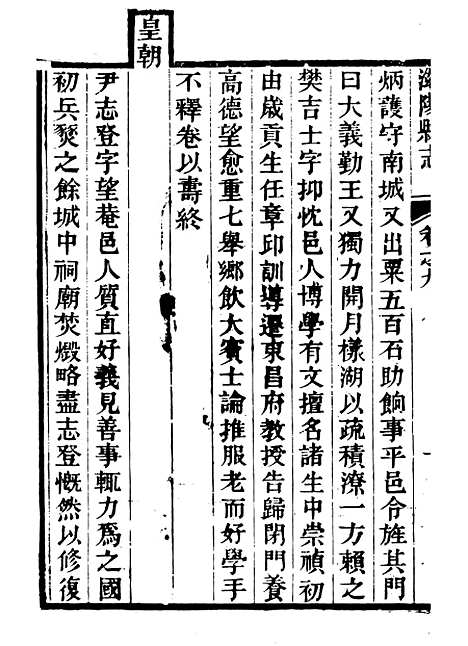 滋陽縣志
卷之九
炳護守南城又出粟五百石助餉事平邑令旌其門
曰大義勤王又獨力開月樣湖以疏積潦一方賴之
樊吉士字抑忱邑人博學有文擅名諸生中崇禎初
由歲貢生任章邱訓導遷東昌府教授告歸閉門養
高德望愈重七舉鄉飲大賓士論推服老而好學手
不釋卷以壽終
皇朝
尹志登字望菴邑人質直好義見善事輒力爲之國
初兵燹之餘城中祠廟焚燬略盡志登慨然以修復